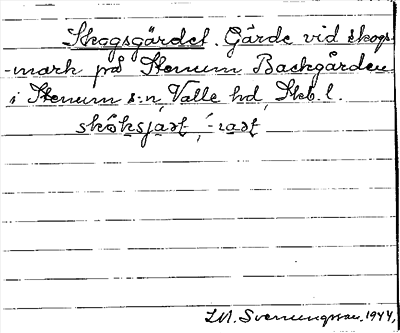 Skogsgärdet. Gärde vid skogs-
-mark på Stenum Backgården
i Stenum s:n, Valle hd, Skb. l.
S. M. Svenungsson. 1944.